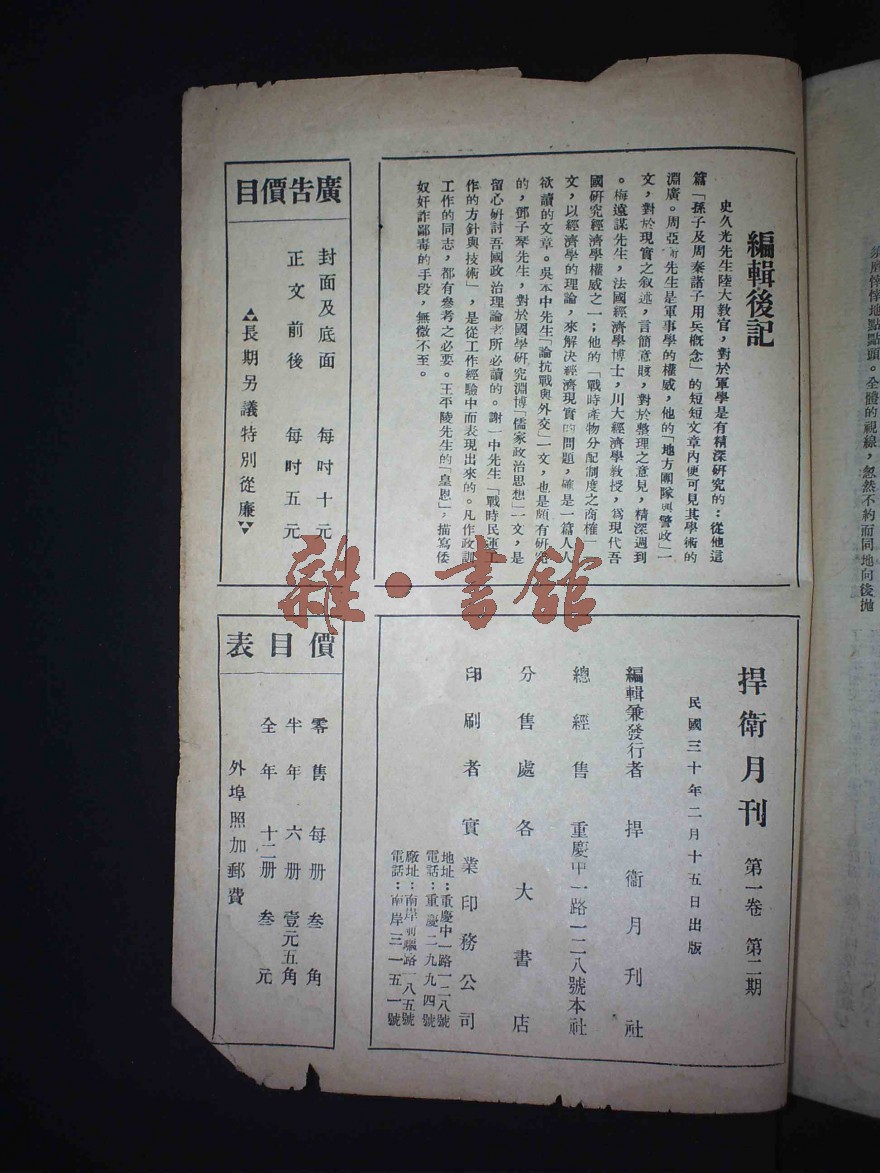 編輯後記
史久光先生陸大教官，對於軍學是有精深研究的：從他這
篇「孫子及周秦諸子用兵概念」的短短文章內便可見其學術的
淵廣。周亞 先生是軍事學的權威，他的「地方團隊與警政」一
文，對於現實之叙述，言簡意賅，對於整理之意見，精深週到
。梅遠謀先生，法國經濟學博士，川大經濟學教授，爲現代吾
國研究經濟學權威之一；他的「戰時產物分配制度之商榷」一
文，以經濟學的理論，來解決經濟現實的問題，確是一篇人人
欲讀的文章。吳本中先生「論抗戰與外交」一文，也是頗有研究
的，鄧子琴先生，對於國學研究淵博「儒家政治思想」一文，是
留心研討吾國政治理論者所必讀的。謝一中先生「戰時民運工
作的方針與技術」，是從工作經驗中而表現出來的。凡作政訓
工作的同志，都有參考之必要。王平陵先生的「皇恩」，描寫倭
奴奸詐鄙毒的手段，無微不至。
廣告價目
封面及底面 每吋十元
正文前後 每吋五元
▲長期另議特別從廉▼
捍衛月刊 第一卷 第二期
民國三十年二月十五日出版
編輯兼發行者 捍衛月刊社
總經售 重慶中一路一二八號本社
分售處 各大書店
印刷者 實業印務公司
地址：重慶中一路一二八號
電話：重慶二九九四號
廠址：南岸 路一八五號
電話：南岸三一五一號
價目表
零售 每册 叁角
半年 六册 壹元五角
全年 十二册 叁元
外埠照加郵費
地點點頭。全體的視線，忽然不約而同地向後拋
雜·書舘